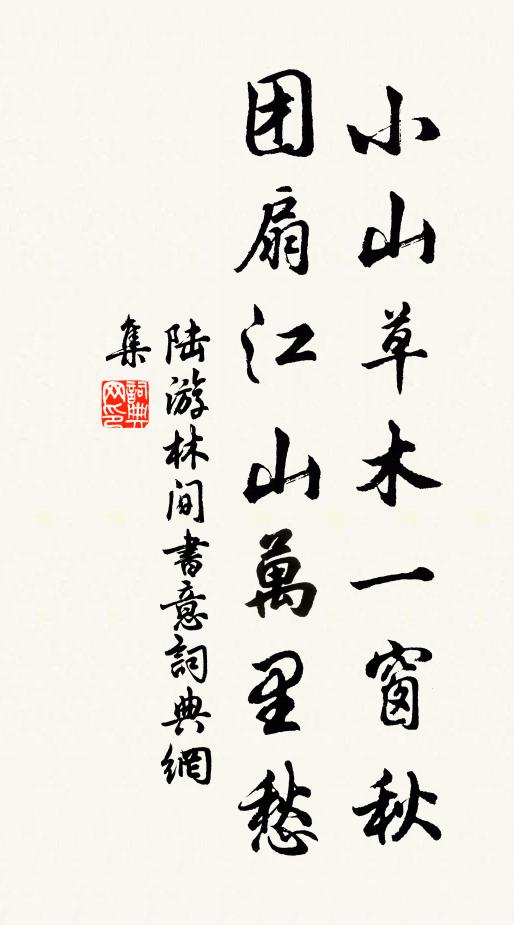 小山草木一窗秋
团扇江山萬里愁
陆游林间書意詞典網
集
詞典网印